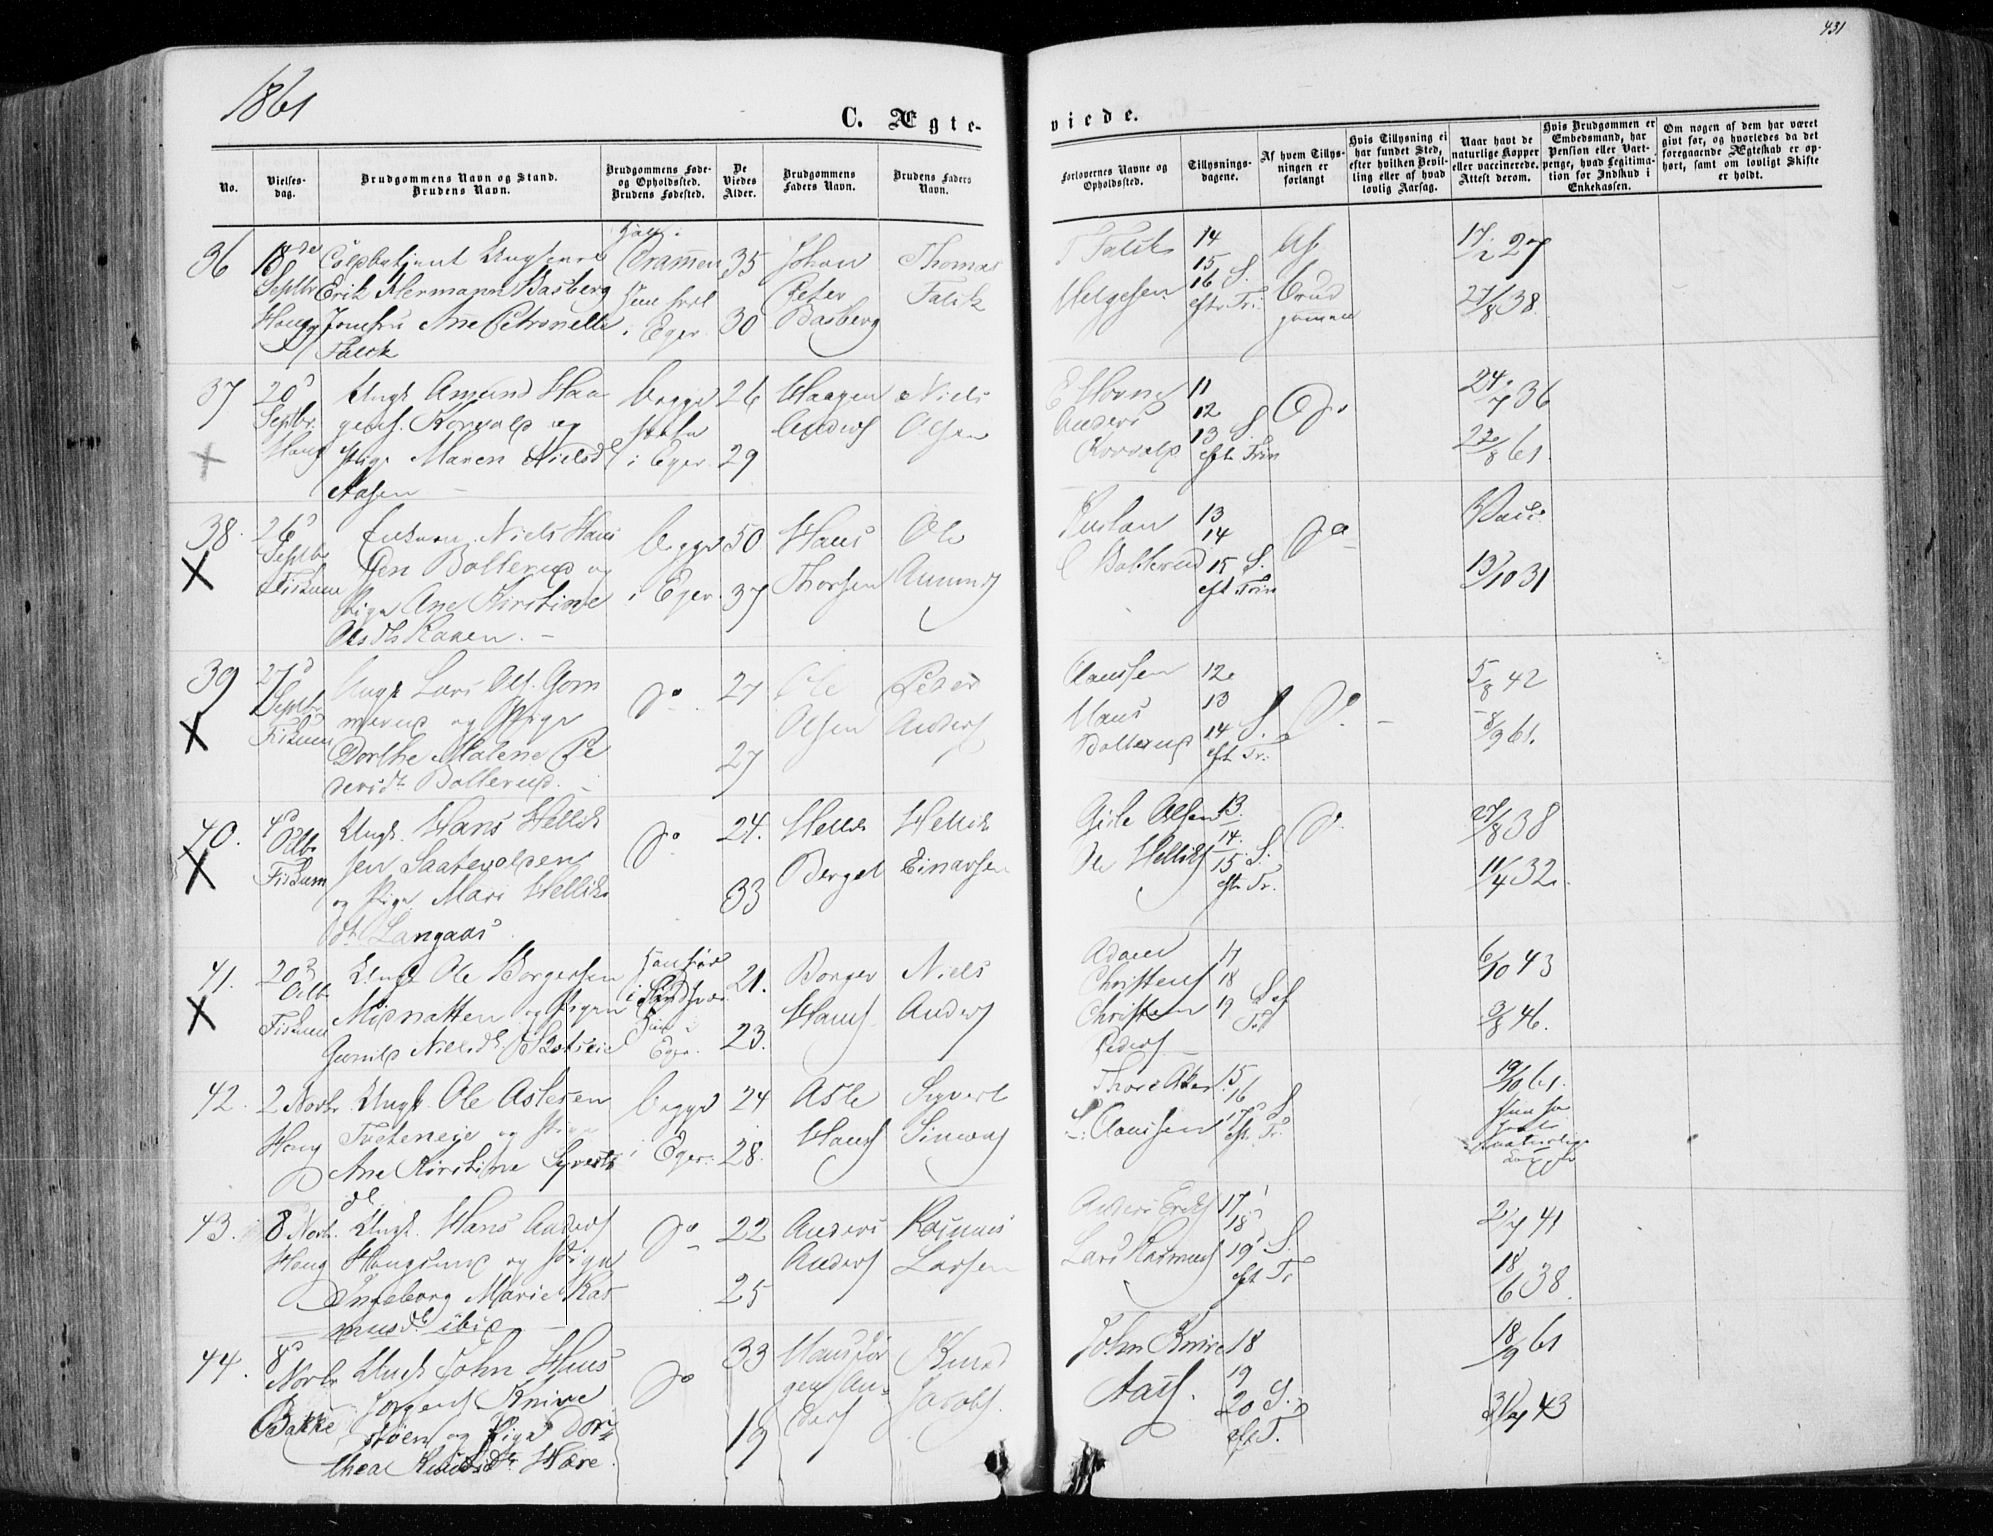 1861
431
C. Ægte-
viede.
No.
Vielses-
dag.
Brudgommens Navn og Stand.
Brudens Navn.
Brudgommens Føde-
og Opholdssted.
Brudens Fødested.
De
Viedes
Alder.
Brudgommens
Faders Navn.
Brudens Faders
Navn.
Forlovernes Navne og
Opholdssted.
Tillysnings-
dagene.
Af hvem Tillys-
ningen er
forlangt
Hvis Tillysning ei
har fundet Sted,
efter hvilken Bevil-
ling eller af hvad
lovlig Aarsag.
Naar havt de
naturlige Kopper
eller vaccinerede.
Attest derom.
Hvis Brudgommen er
Embedsmand, har
Pension eller Vart-
penge, hvad Legitima-
tion for Indskud i
Enkekassen.
Om nogen af dem har været
gift før, og hvorledes da det
foregaaende Ægteskab er op-
hørt, samt om lovligt Skifte
er holdt.
36
18de
Septbr
Erik Hermann Basberg
Jomfru Ane Petronelle
Falck
Drammen
i Eger
35
30
Johan
Peter
Basberg
Thomas
Falck
T Falck
Helgesen
14
15
16 S.
eft Tr.
Af
Brud
gommen
17/2 27
27/8 38
37
20d
Septbr.
Haug
Ungk Amund Haa
gens. Korvald og
Pige Maren Nielsd
Aasen
begge
i Eger
26
29
Haagen
Anders
Niels
Olsen
Anders
Korvald
11
12
13 S.
eft Trin
Do
24/7 36
22/8 61
38.
26d
Septbr
Fiskum
Enkem. Niels Hans
sen Bollerud og
Pige Ane Kirstine
Olsdtr Raaen.
begge
i Eger
50
37
Hans
Thorsen
Ole
Amunds
Ruslan
Bollerud
13
14
15 S.
eft Trin
Do
Vacc
13/10 31
39
27d
Septbr
Fiskum
Ungk Lars Ols. Gom
merud og Pige
Dorthe Malene Pe
dersdt Bollerud.
Do
27
27
Ole
Olsen
Peder
Anders
Claussen
Hans
Bollerud
12
13
14 S.
eft Tr.
Do
5/8 42
8/9 61.
40.
4d
Octbr
Fiskum
Ungk. Hans Hellik
sen Saatevolden
og Pige Mari Helliks
dt Langaas
Do
24.
33
Hellik
Berget
Hellik
Einarsen
Gisle Olsen
Ole Helliks
13.
14.
15 S.
eft Tr.
Do
27/8 38
11/4 32.
41.
20d
Octbr
Fiskum
Ungk Ole Borgersen
Mognatten og Pigen
Gunild Nielsdt
i Sandsvær
Hun i
Eger.
21.
23.
Borger
Hans
Niels
Anders
Adam
Christens
Christen
Peders
17
18
19 S ef
Tr
6/10 43
3/8 46.
42.
2 Novbr
Haug
Ungk. Ole Aslesen
Tveteneie og Pige
Ane Kirstine Syverts
dt
begge
i Eger.
24
28.
Asle
Hans
Syvert
Simens
Thore Aker
S. Claussen
15
16
17 S
eft Tr.
19/10 61.
naturlige
43.
8 Novbr.
Haug
Ungk. Hans Anders
Haugsund og Pige
Ingeborg Marie Ras
musdt ibid
Do
22
25
Anders
Anders
Rasmus
Larsen
Anders Eriks
Lars Rasmuss
17
18
19 S.
eft Tr
2/7 41
18/6 38.
44.
8d
Novbr
Bakke
Ungk John Hans
Jørgens Knive
støen og Pige Dor
thea Knudsdtr Hære
Do
33
19
Hans Jør
gen An-
ders
Knud
Jacobs.
John Knive
Aass.
18
19
20 S.
eft T.
18/9 61
31/7 43